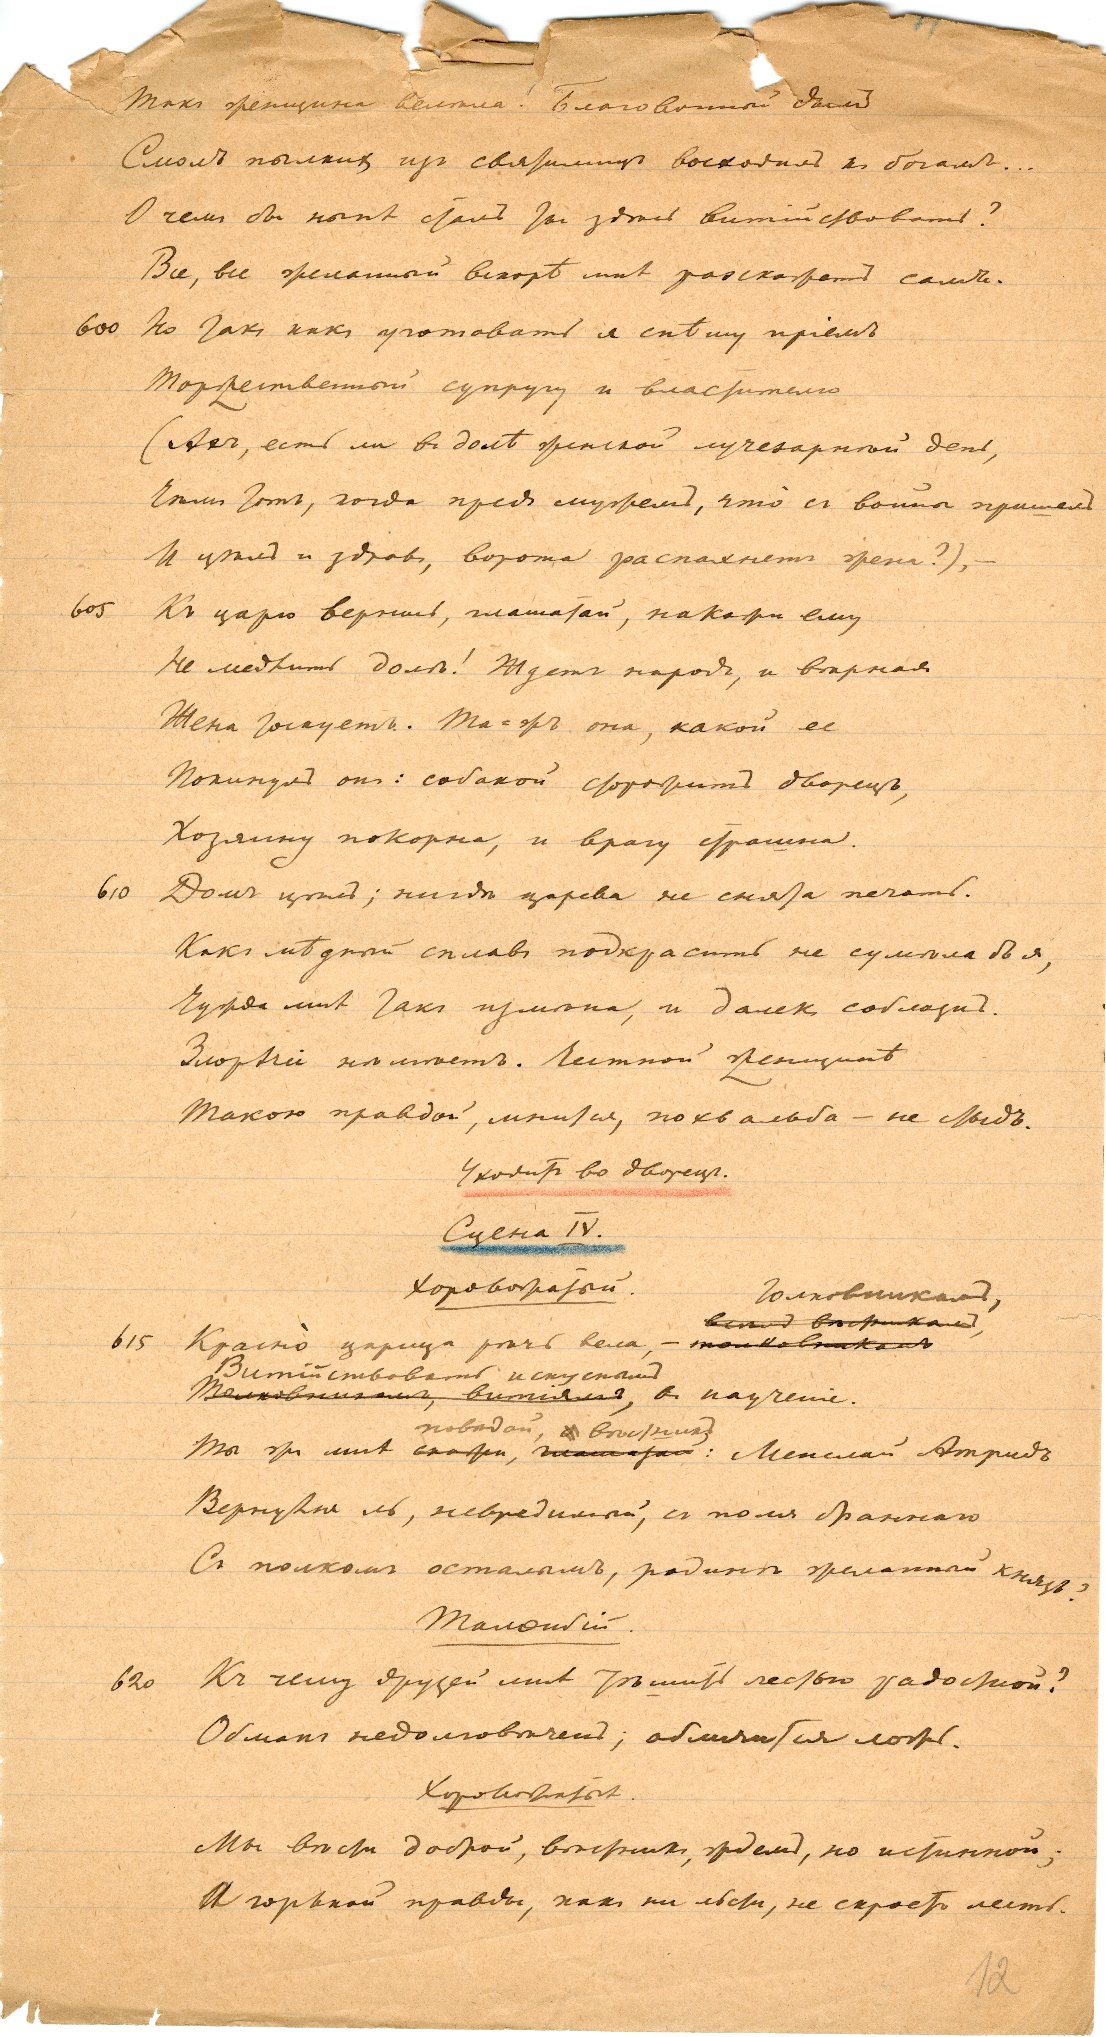 Такъ женщина велѣла! Благовонный дымъ
Смолъ пылкихъ изъ святилищъ восходилъ къ богамъ...
О чемъ бы нынѣ сталъ ты здѣсь витійствовать?
Все, все желанный вскорѣ мнѣ разскажетъ самъ.
600 Но такъ какъ уготовать я спѣшу пріемъ
Торжественный супругу и властителю
(Ахъ, есть ли въ долѣ женской лучезарнѣй день,
Чѣмъ тотъ, когда предъ мужемъ, что̀ съ войны пришелъ
И цѣлъ и здравъ, ворота распахнетъ жена?), —
605 Къ царю вернись, глашатай, накажи ему
Не медлить долѣ! Ждетъ народъ, и вѣрная
Жена тоскуетъ. Та-жъ она, какой ее
Покинулъ онъ: собакой сторожитъ дворецъ,
Хозяину покорна, и врагу страшна.
610 Домъ цѣлъ; нигдѣ царева не снята печать.
Какъ мѣдный сплавъ подкрасить не сумѣла бъ я,
Чужда мнѣ такъ измѣна, и далекъ соблазнъ.
Злорѣчье нѣмѣетъ. Честной женщинѣ
Такою правдой, мнится, похвальба – не стыдъ.
Уходитъ во дворецъ.
Сцена IV.
Хоровожатый.
толковникамъ,
всѣмъ вѣжникамъ,
615 Красно̀ царица рѣчь вела, – толковникамъ
Витійствовать искуснымъ
Толковникамъ, витіямъ, въ наученіе.
повѣдай, вѣстникъ
Ты же мнѣ скажи, глашатай: Менелай Атридъ
Вернулся ль, невредимый, съ поля браннаго
Съ полкомъ осталымъ, родинѣ желанный князь?
Талѳибій.
620 Къ чему друзей мнѣ тѣшить лестью радостной?
Обманъ недолговѣченъ; обличится ложь.
Хоровожатый.
Мы вѣсти доброй, вѣстникъ, ждемъ, но истинной;
А горькой правды, какъ ни льсти, не скроетъ лесть.
12